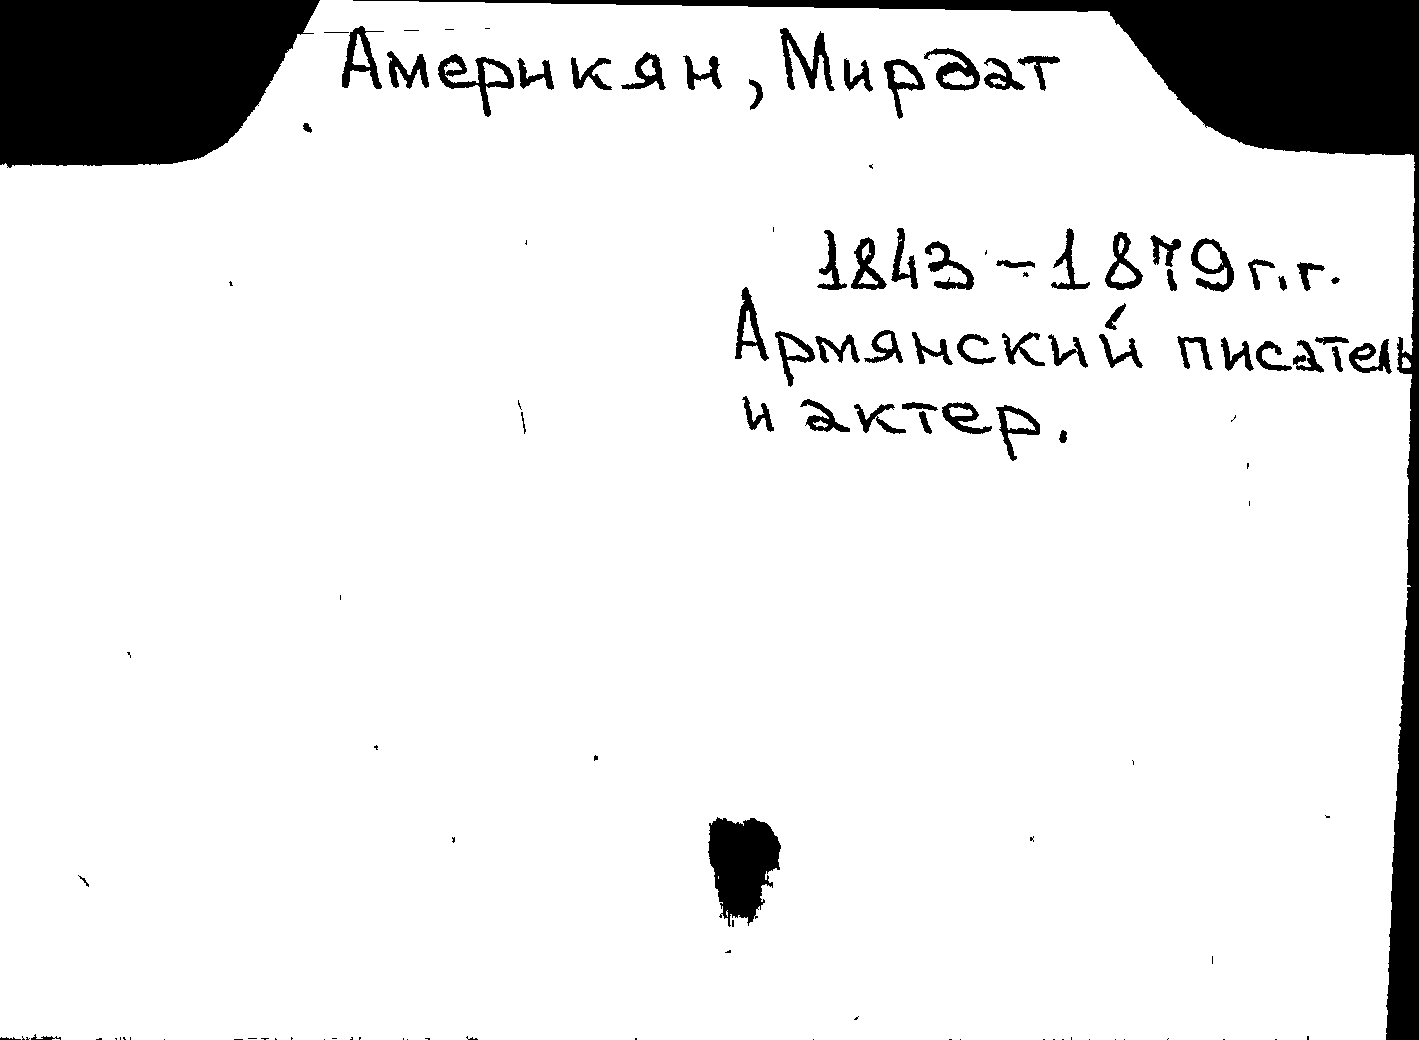 Америкян, Мирдат
1843-1879 г.г.
Армянский писатель
и актер.